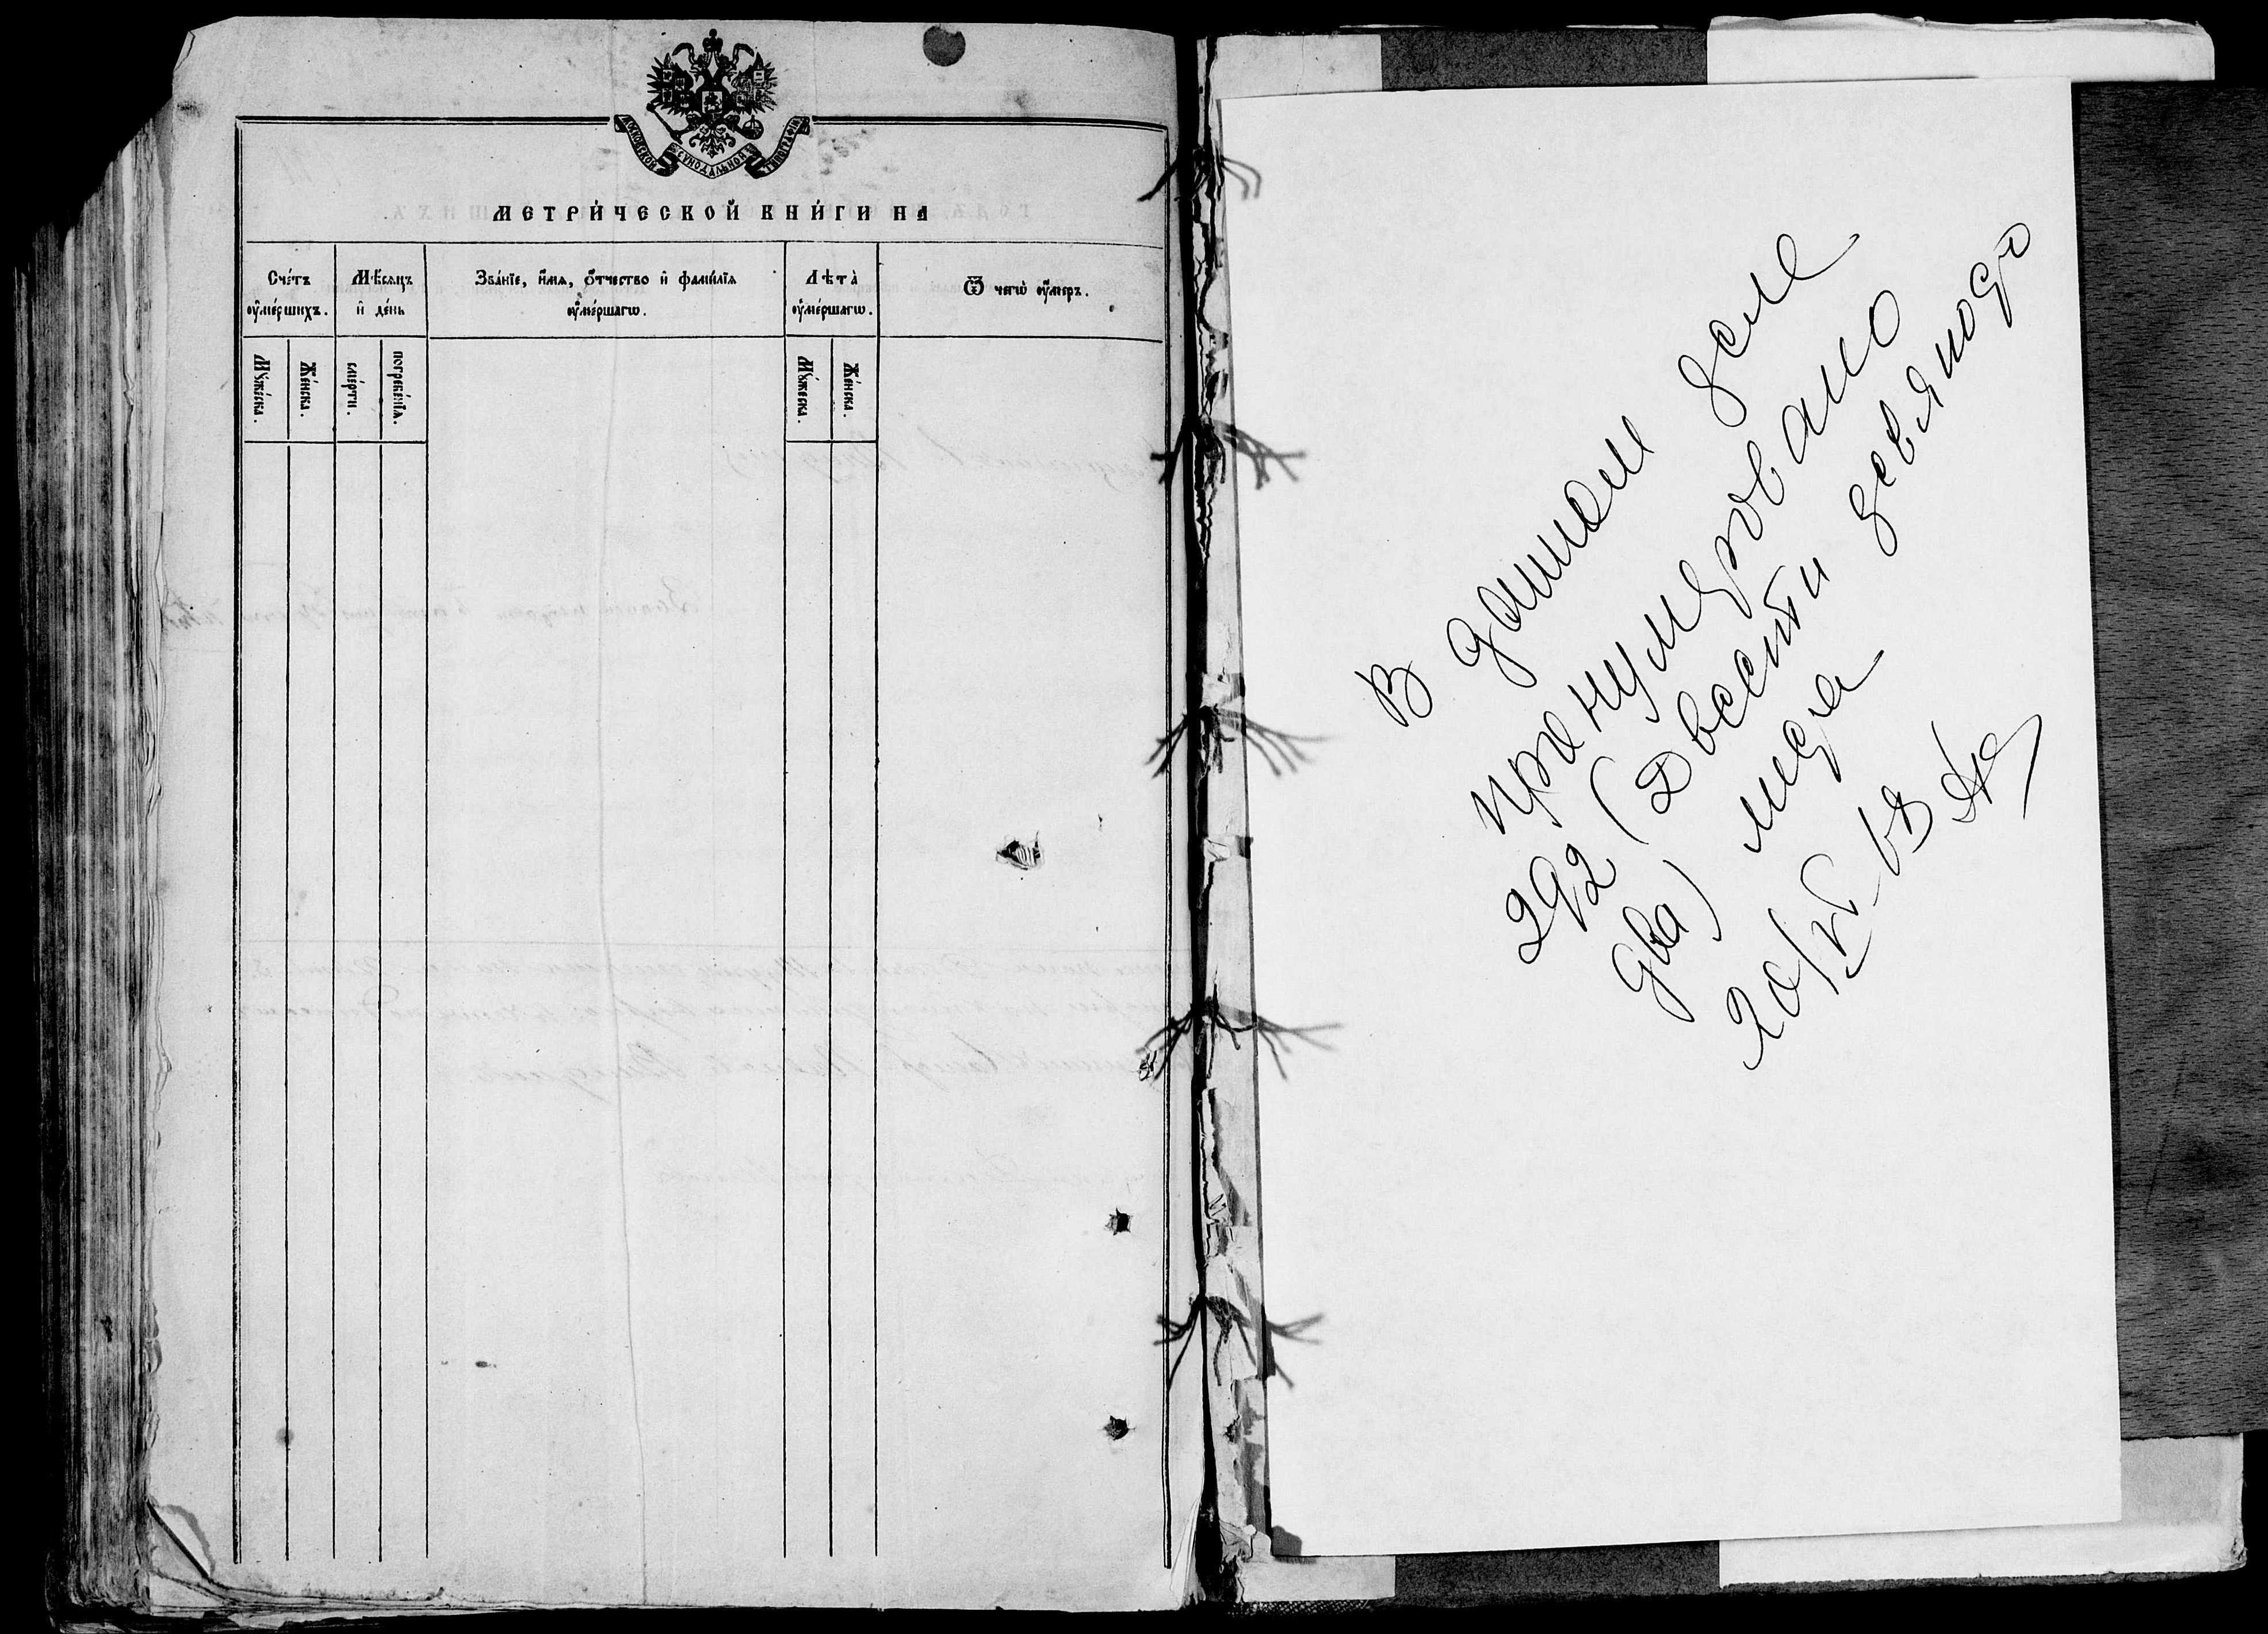 МОСКОВСКОЙ СѴНОДАЛЬНОЙ ТИПОГРАФІИ
МЕТРИ́ЧЕСКОЙ КНИ́ГИ НА
Сче́тъ
ᲂу҆ме́ршихъ.
Мѣ́сѧцъ
и҆ де́нь
Зва́нїе, и҆́мѧ, ѻ҆́тчество и҆ фамѝлїѧ
ᲂу҆ме́ршагѡ.
Лѣта̀
ᲂу҆ме́ршагѡ.
Ѿ чегѡ̀ ᲂу҆́меръ.
Мꙋ́жеска.
Же́нска.
сме́рти.
погребе́нїѧ.
Мꙋ́жеска.
Же́нска.
В данном деле
пронумеровано
292 (Двести девяносто
два) листа
20/IV-68